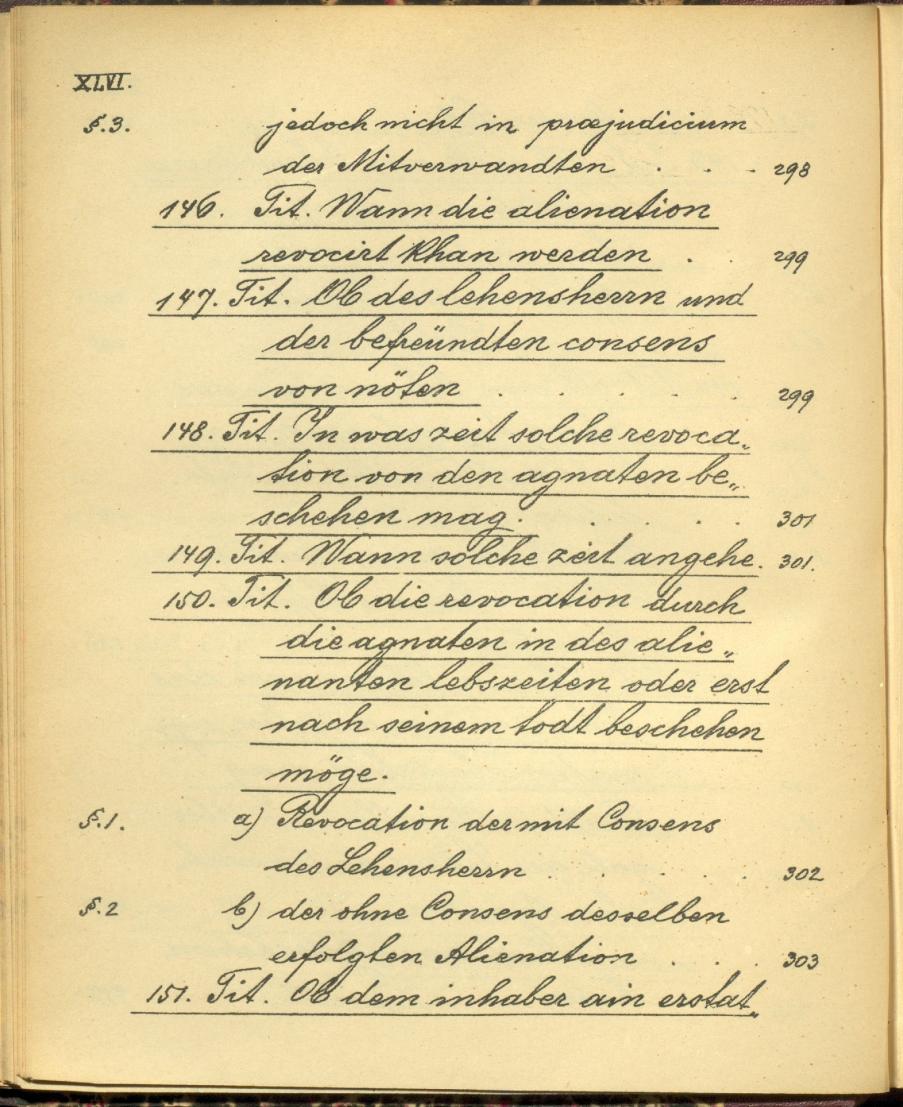 XLVI.
§.3. jedoch nicht in præjudicium
der Mitverwandten . . . 298
146. Tit. Wann die alienation
revocirt khan werden . . 299
147. Tit. Ob des lehensherrn und
der befreündten consens
von nöten . . . . . 299
148. Tit. In was zeit solche revoca„
tion von den agnaten be„
schehen mag . . . . . 301
149. Tit. Wann solche zeit angehe. 301.
150. Tit. Ob die revocation durch
die agnaten in des alie„
nanten lebszeiten oder erst
nach seinem todt beschehen
möge.
§.1. a) Revocation der mit Consens
des Lehensherrn . . . . 302
§.2 b) der ohne Consens desselben
erfolgten Alienation . . . 303
151. Tit. Ob dem inhaber ain erstat„